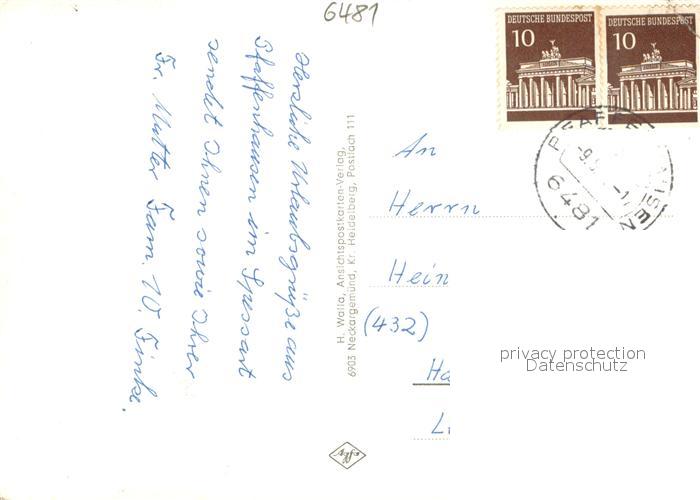 6481
DEUTSCHE BUNDESPOST
10
DEUTSCHE BUNDESPOST
10
6481
Herzliche Urlaubsgrüße aus
Pfaffenhausen im Spessart
sendet Ihnen sowie Ihrer
Fr. Mutter Fam. W. Finke.
H. Walla, Ansichtspostkarten-Verlag,
6903 Neckargemünd, Kr. Heidelberg, Postfach 111
An
Herrn
Hein
(432)
Ha
L
privacy protection
Datenschutz
Agfa